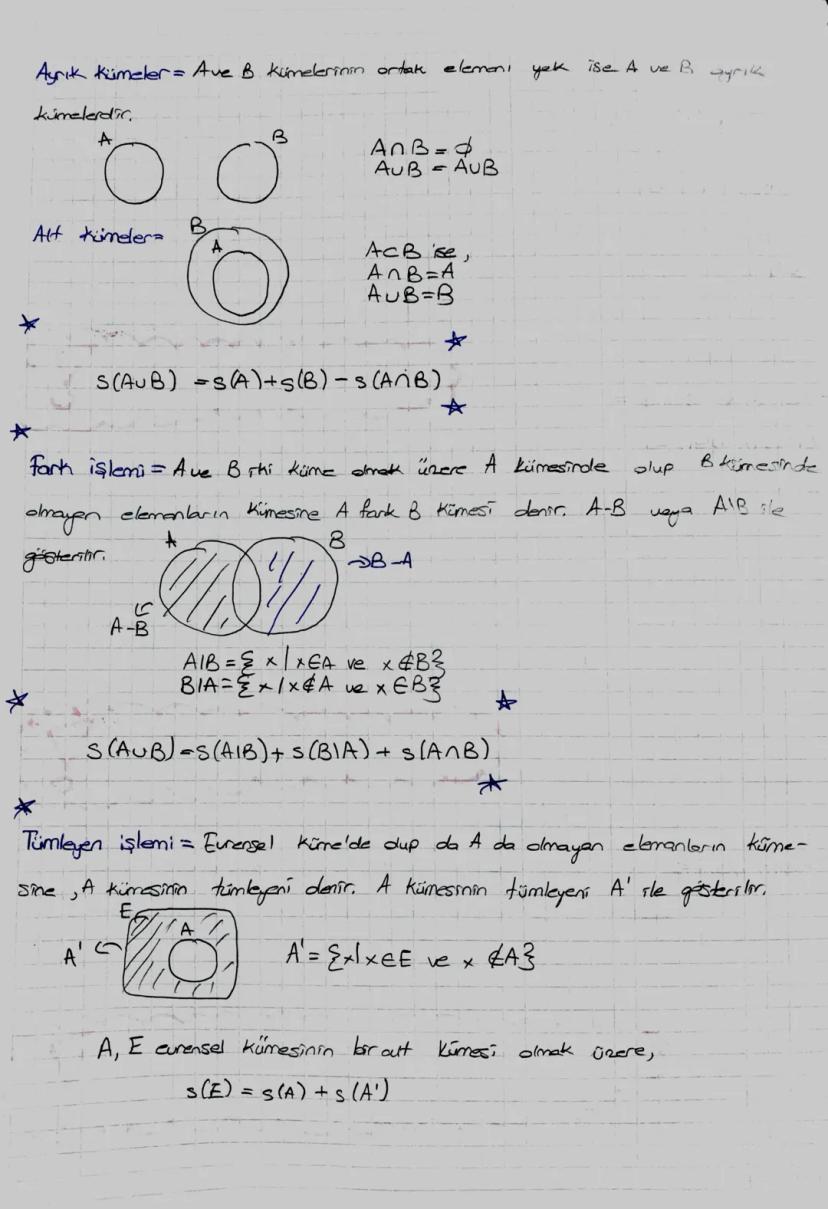 Ayrık Kümeler = A ve B kümelerinin ortak elemanı yok ise A ve B ayrık
kümelerdir.
A B
A∩B = ∅
A∪B = A∪B
Alt kümeler =
B
A
A⊂B ise,
A∩B=A
A∪B=B
s(A∪B) = s(A)+s(B) - s(A∩B)
Fark işlemi = A ve B iki küme olmak üzere A kümesinde olup B kümesinde
olmayan elemanların kümesine A fark B kümesi denir. A-B veya A\B ile
gösterilir.
A B
→B-A
A-B
A\B = {x | x∈A ve x∉B}
B\A = {x | x∉A ve x∈B}
s(A∪B) = s(A\B) + s(B\A) + s(A∩B)
Tümleyen işlemi = Evrensel Küme'de olup da A da olmayan elemanların küme-
sine, A kümesinin tümleyeni denir. A kümesinin tümleyeni A' ile gösterilir.
E
A
A'
A' = {x | x∈E ve x∉A}
A, E evrensel kümesinin bir alt kümesi olmak üzere,
s(E) = s(A) + s(A')